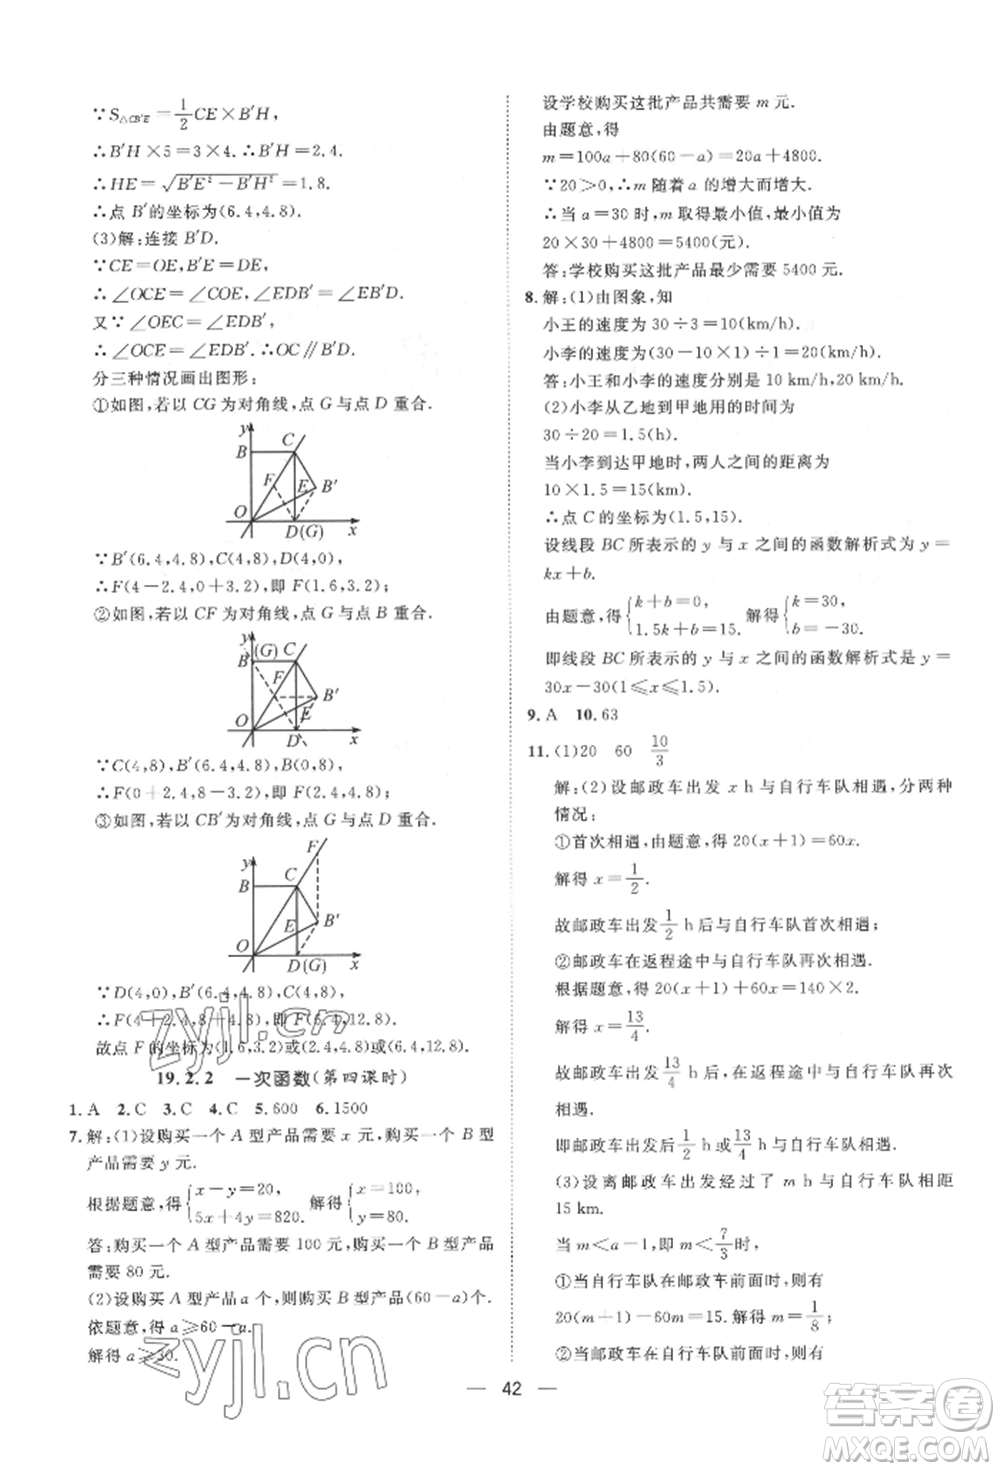 ∵S△CB′E=1/2 CE×B′H,
∴B′H×5=3×4.∴B′H=2.4.
∴HE=√(B′E²−B′H²)=1.8.
∴点 B′的坐标为(6.4,4.8).
(3)解:连接 B′D.
∵CE=OE,B′E=DE,
∴∠OCE=∠COE,∠EDB′=∠EB′D.
又∵∠OEC=∠EDB′,
∴∠OCE=∠EDB′.∴OC∥B′D.
分三种情况画出图形:
①如图,若以 CG 为对角线,点 G 与点 D 重合.
y
B C
F E B′
O D(G) x
∵B′(6.4,4.8),C(4,8),D(4,0),
∴F(4−2.4,0+3.2),即 F(1.6,3.2);
②如图,若以 CF 为对角线,点 G 与点 B 重合.
y
B (G) C
F B′
E
O D x
∵C(4,8),B′(6.4,4.8),B(0,8),
∴F(0+2.4,8−3.2),即 F(2.4,4.8);
③如图,若以 CB′为对角线,点 G 与点 D 重合.
y F
B C
E B′
O D(G) x
∵D(4,0),B′(6.4,4.8),C(4,8),
∴F(4+2.4,8+4.8),即 F(6.4,12.8).
故点 F 的坐标为(1.6,3.2)或(2.4,4.8)或(6.4,12.8).
19.2.2 一次函数(第四课时)
1.A 2.C 3.C 4.C 5.600 6.1500
7.解:(1)设购买一个 A 型产品需要 x 元,购买一个 B 型
产品需要 y 元.
根据题意,得{x−y=20, 5x+4y=820. 解得{x=100, y=80.
答:购买一个 A 型产品需要 100 元,购买一个 B 型产品
需要 80 元.
(2)设购买 A 型产品 a 个,则购买 B 型产品(60−a)个.
依题意,得 a≥60−a.
解得 a≥30.
设学校购买这批产品共需要 m 元.
由题意,得
m=100a+80(60−a)=20a+4800.
∵20>0,∴m 随着 a 的增大而增大.
∴当 a=30 时,m 取得最小值,最小值为
20×30+4800=5400(元).
答:学校购买这批产品最少需要 5400 元.
8.解:(1)由图象,知
小王的速度为 30÷3=10(km/h),
小李的速度为(30−10×1)÷1=20(km/h).
答:小王和小李的速度分别是 10 km/h,20 km/h.
(2)小李从乙地到甲地用的时间为
30÷20=1.5(h).
当小李到达甲地时,两人之间的距离为
10×1.5=15(km).
∴点 C 的坐标为(1.5,15).
设线段 BC 所表示的 y 与 x 之间的函数解析式为 y=
kx+b.
由题意,得{k+b=0, 1.5k+b=15. 解得{k=30, b=−30.
即线段 BC 所表示的 y 与 x 之间的函数解析式是 y=
30x−30(1≤x≤1.5).
9.A 10.63
11.(1)20 60 10/3
解:(2)设邮政车出发 x h 与自行车队相遇,分两种
情况:
①首次相遇,由题意,得 20(x+1)=60x.
解得 x=1/2.
故邮政车出发 1/2 h 后与自行车队首次相遇;
②邮政车在返程途中与自行车队再次相遇.
根据题意,得 20(x+1)+60x=140×2.
解得 x=13/4.
故邮政车出发 13/4 h 后在返程途中与自行车队再次
相遇.
即邮政车出发后 1/2 h 或 13/4 h 与自行车队相遇.
(3)设离邮政车出发经过了 m h 与自行车队相距
15 km.
当 m<a−1,即 m<7/3 时,
①当自行车队在邮政车前面时,则有
20(m+1)−60m=15.解得 m=1/8;
②当邮政车在自行车队前面时,则有
— 42 —
zyjl.cn
zyjl.cn
答案圈
MXQE.COM